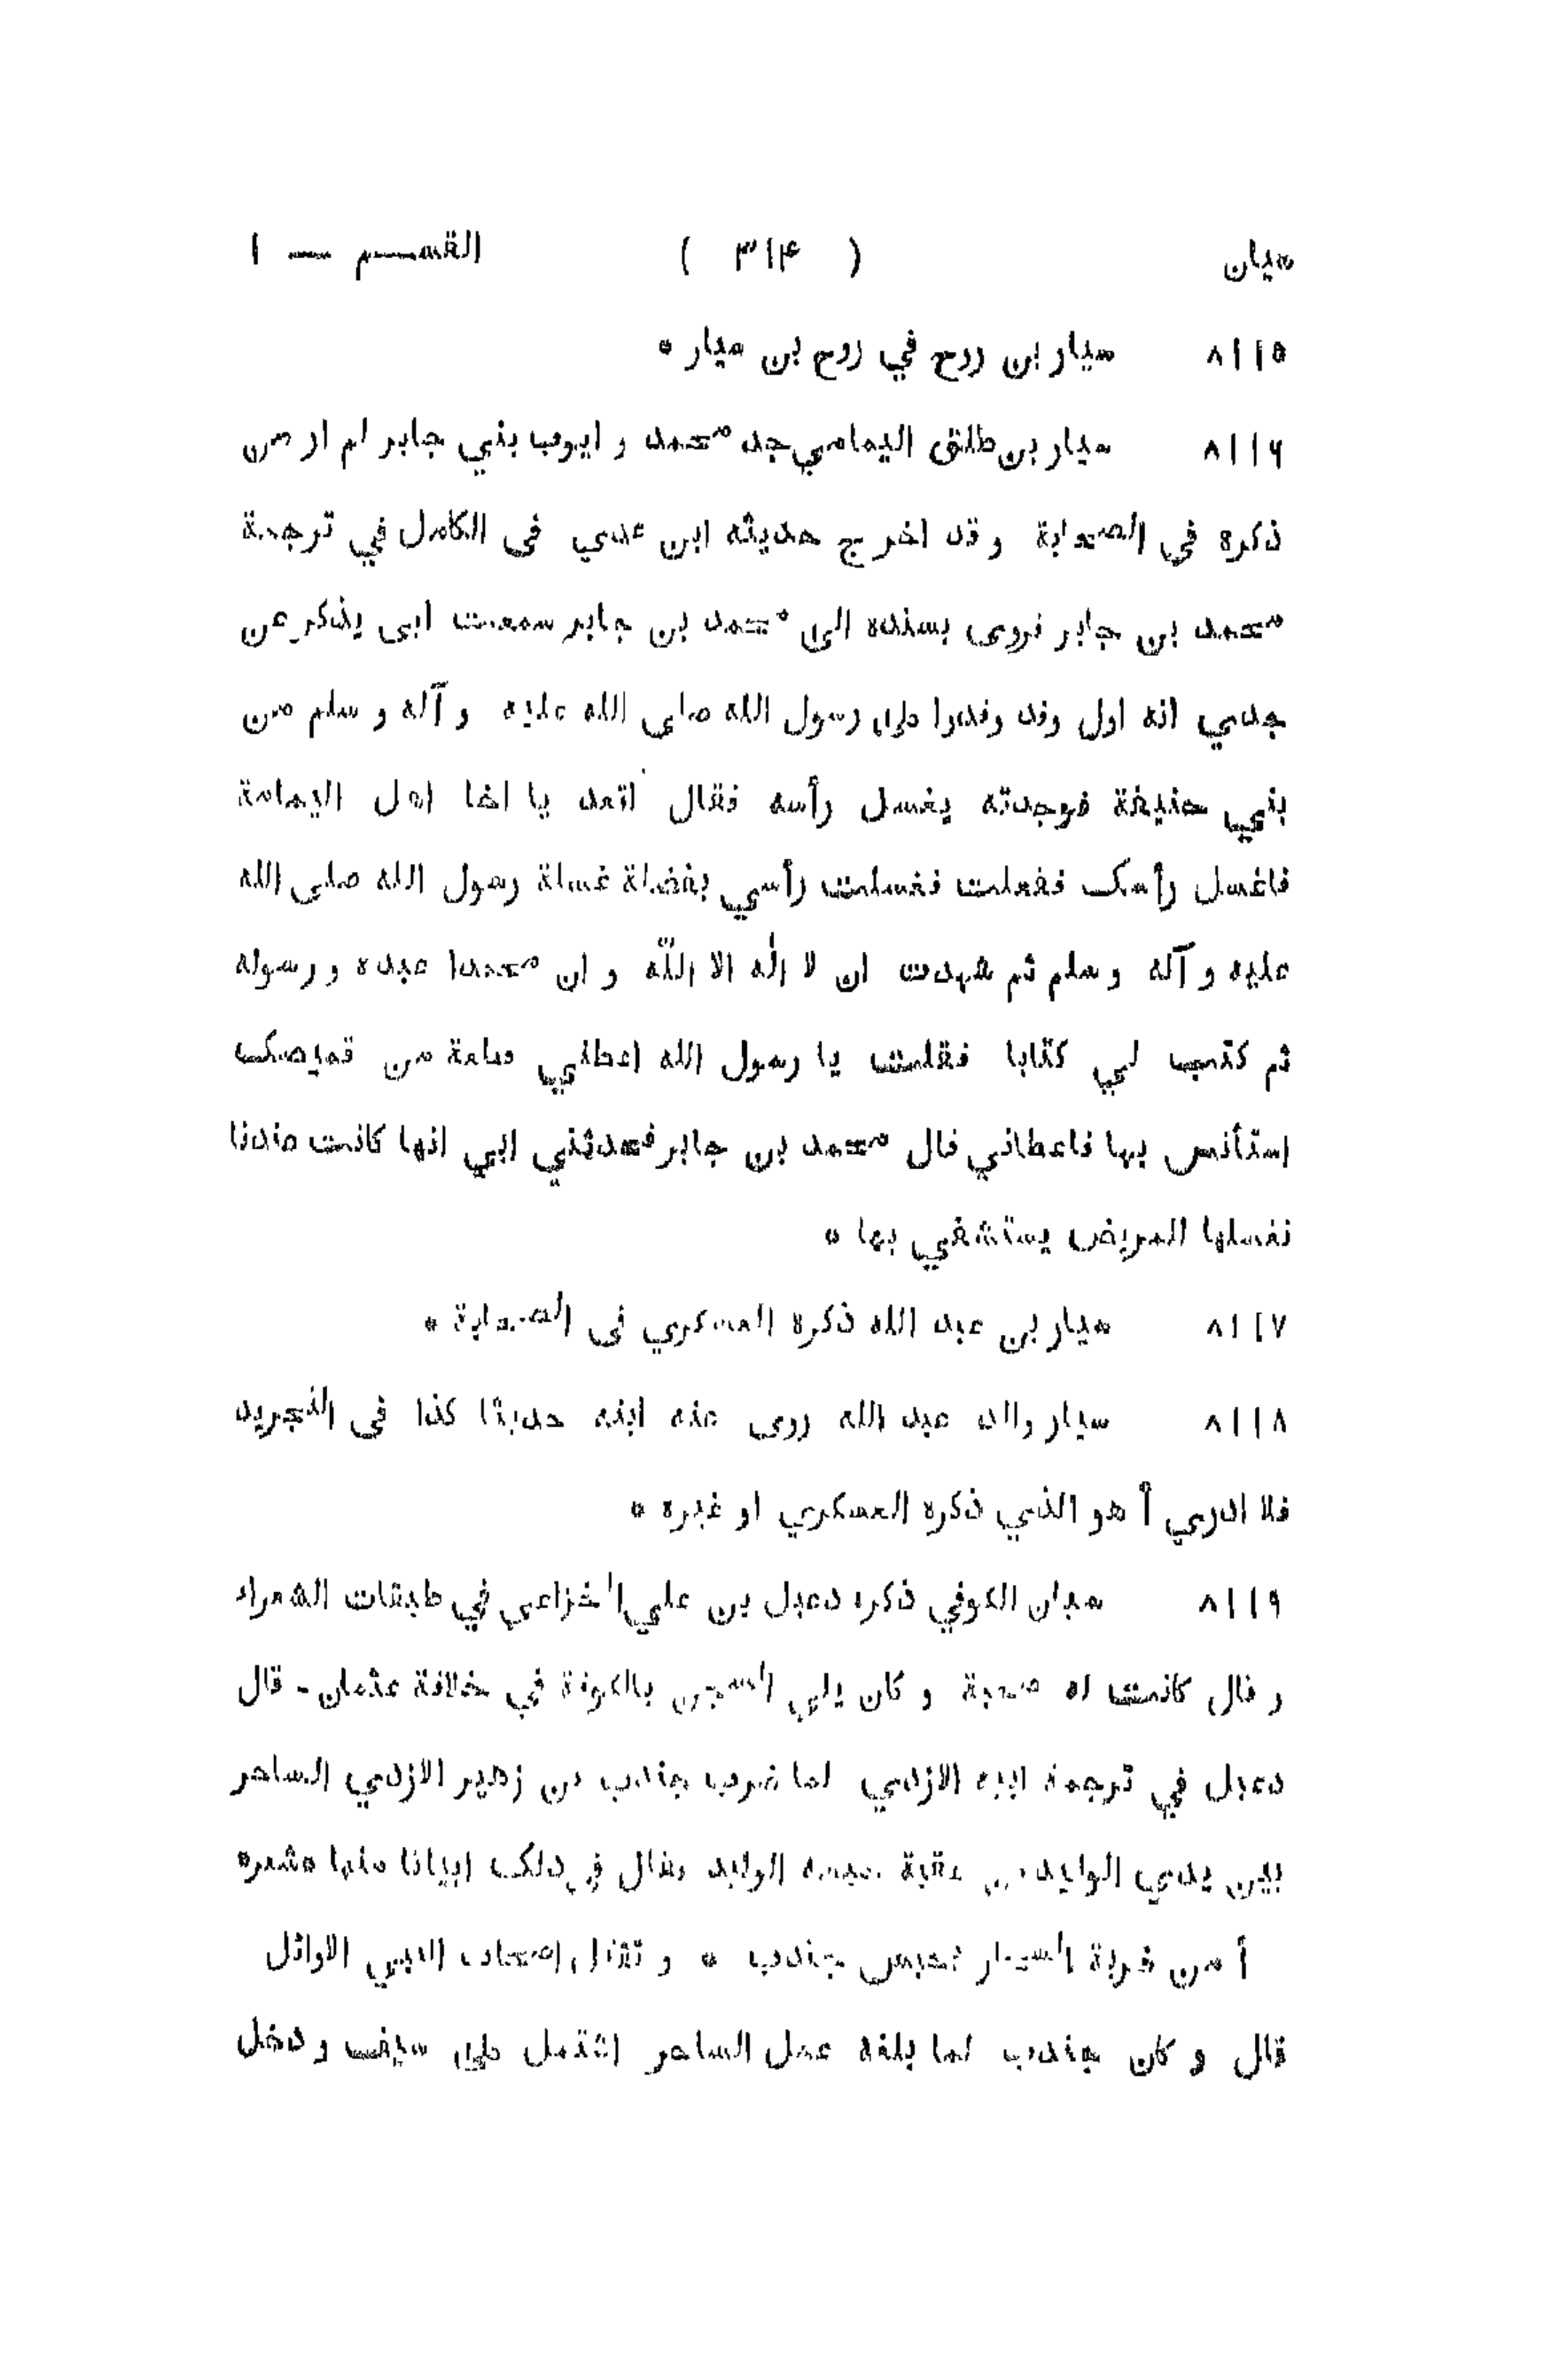 سيان ( ٣١۴ ) القسم — ١
٨١١٥ سيار بن روح في روح بن سيار *
٨١١٦ سيار بن طلق اليمامي جد محمد و ايوب بني جابر لم ار من
ذكره في الصحابة و قد اخرج حديثه ابن عدي في الكامل في ترجمة
محمد بن جابر فروى بسنده الى محمد بن جابر سمعت ابى يذكر عن
جدي انه اول وفد وفدوا على رسول الله صلى الله عليه و آله و سلم من
بني حنيفة فوجدته يغسل رأسه فقال اقعد يا اخا اهل اليمامة
فاغسل رأسك ففعلت فغسلت رأسي بفضلة غسلة رسول الله صلى الله
عليه و آله و سلم ثم شهدت ان لا اله الا الله و ان محمدا عبده و رسوله
ثم كتب لي كتابا فقلت يا رسول الله اعطني من قميصك
استأنس بها فاعطاني قال محمد بن جابر فحدثني ابي انها كانت عندنا
نغسلها للمريض يستشفي بها *
٨١١٧ سيار بن عبد الله ذكره العسكري فى الصحابة *
٨١١٨ سيار والد عبد الله روى عنه ابنه حديثا كذا فى التجريد
فلا ادري أ هو الذي ذكره العسكري او غيره *
٨١١٩ سيان الكوفي ذكره دعبل بن علي الخزاعي في طبقات الشعراء
و قال كانت له صحبة و كان يلي السجن بالكوفة في خلافة عثمان - قال
دعبل في ترجمة الازدي لما ضرب جندب بن زهير الازدي الساحر
بين يدي الوليد بن عقبة حبسه الوليد فقال في ذلك ابياتا منها * شعر *
أ من ضربة السحار تحبس جندب * و تقتل اصحاب النبي الاوائل
قال و كان جندب لما بلغه عمل الساحر اشتمل على سيف و دخل